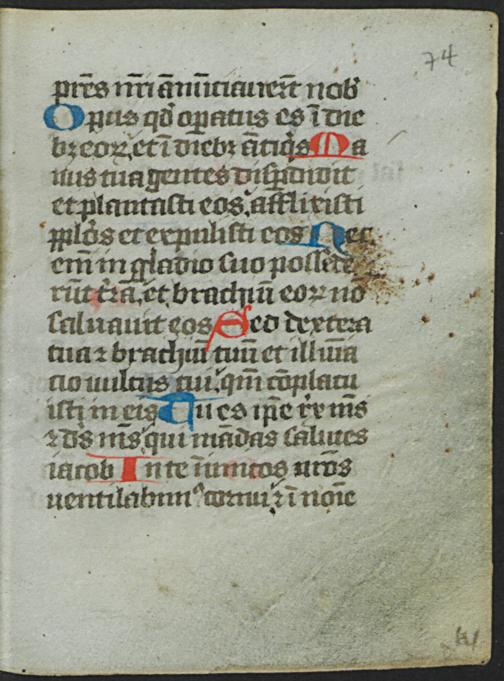 74
pres nri anunciauert nob
Opus qd opatus es i die
bz eoꝝ, et i diebz atiqs Ma
nus tua gentes dispdidit
et plantasti eos, afflixisti
pplos et expulisti eos Nec
em in gladio suo posede
rut tra, et brachiu eoꝝ no
saluauit eos Sed dextera
tua ⁊ brachiu tuu et illuia
cio uultus tui, qm coplacu
isti in eis Tu es ipe rx ms
⁊ ds ms, qui madas salutes
iacob In te inimicos nros
uentilabim cornu, ⁊ i noie